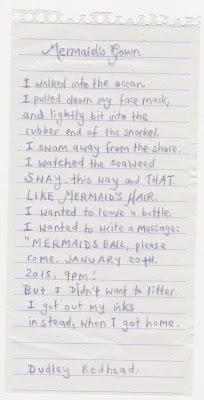 Mermaid's Gown
I walked into the ocean
I pulled down my face mask,
and lightly bit into the
rubber end of the snorkel.
I swam away from the shore.
I watched the seaweed
SWAY. this way and THAT.
LIKE MERMAID'S HAIR.
I wanted to leave a bottle.
I wanted to write a message:
"MERMAIDS BALL, please
come. JANUARY 20TH.
2015, 9pm!
But I Didn't want to litter.
I got out my inks
instead, when I got home.
Dudley Redhead.